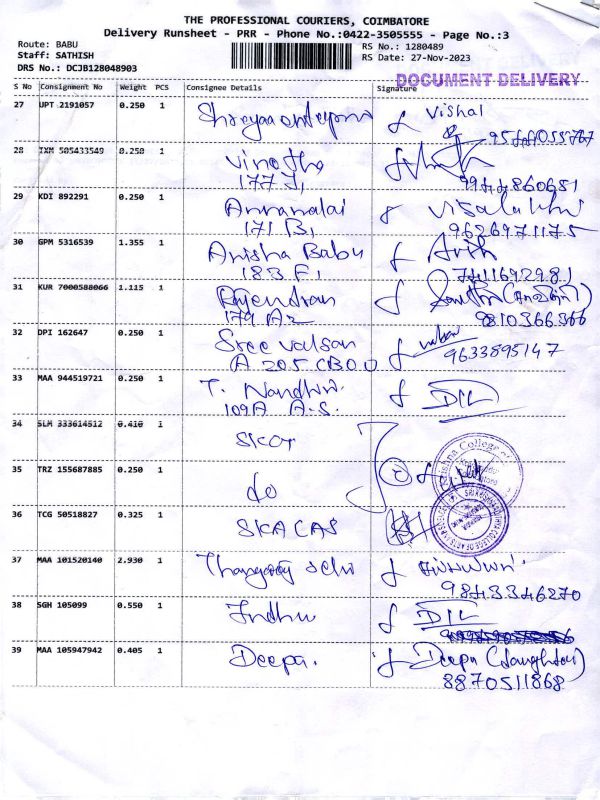 THE PROFESSIONAL COURIERS, COIMBATORE
Delivery Runsheet - PRR - Phone No.:0422-3505555 - Page No.:3
Route: BABU
Staff: SATHISH
DRS No.: DCJB128048903
RS No.: 1280489
RS Date: 27-Nov-2023
DOCUMENT DELIVERY
S No Consignment No Weight PCS Consignee Details Signature
27 UPT 2191057 0.250 1 Vishal
28 IXM 505433549 0.250 1 Vinotha
177 J, 9944860651
29 KDI 892291 0.250 1 Annamalai
171 B, 9626971175
30 GPM 5316539 1.355 1 Anisha Babu
183 F, 7411692981
31 KUR 7000588066 1.115 1 Rajendran
179 A2 9810366366
32 DPI 162647 0.250 1 Sree Valsan
A 205 CBOU 9633895147
33 MAA 944519721 0.250 1 T. Nandhini DIL
109A A.S.
34 SLM 333614512 0.410 1 SKCT
35 TRZ 155687885 0.250 1 do
36 TCG 50518827 0.325 1 SKACAS
37 MAA 101520140 2.930 1 Thangaraj Selvi
9843346270
38 SGH 105099 0.550 1 Indhu DIL
39 MAA 105947942 0.405 1 Deepa. Deepa (Daughter)
8870511868